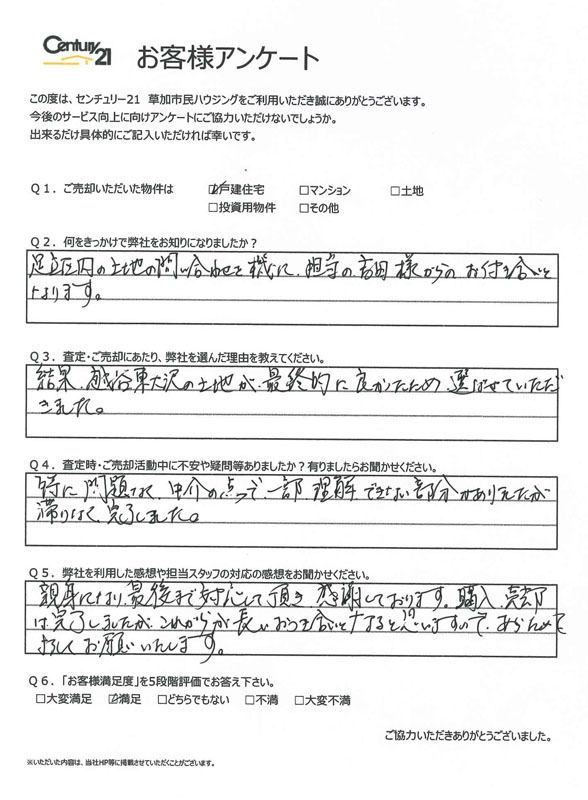 Century 21 お客様アンケート
この度は、センチュリー21 草加市民ハウジングをご利用いただき誠にありがとうございます。
今後のサービス向上に向けアンケートにご協力いただけないでしょうか。
出来るだけ具体的にご記入いただければ幸いです。
Q1．ご売却いただいた物件は ☑戸建住宅 □マンション □土地
□投資用物件 □その他
Q2．何をきっかけで弊社をお知りになりましたか？
足立区内の土地の問い合わせを機に、担当の吉田様からのお付き合いと
なります。
Q3．査定・ご売却にあたり、弊社を選んだ理由を教えてください。
結果、越谷東大沢の土地が、最終的に良かったため、選ばせていただ
きました。
Q4．査定時・ご売却活動中に不安や疑問等ありましたか？有りましたらお聞かせください。
特に問題なく、仲介の点で一部理解できない部分がありましたが
滞りなく、完了しました。
Q5．弊社を利用した感想や担当スタッフの対応の感想をお聞かせください。
親身になり、最後まで対応して頂き感謝しております。購入、売却
は完了しましたが、これからが長いおつき合いとなると思いますので、あらためて
よろしくお願いいたします。
Q6．「お客様満足度」を5段階評価でお答え下さい。
□大変満足 ☑満足 □どちらでもない □不満 □大変不満
ご協力いただきありがとうございました。
※いただいた内容は、当社HP等に掲載させていただくことがございます。